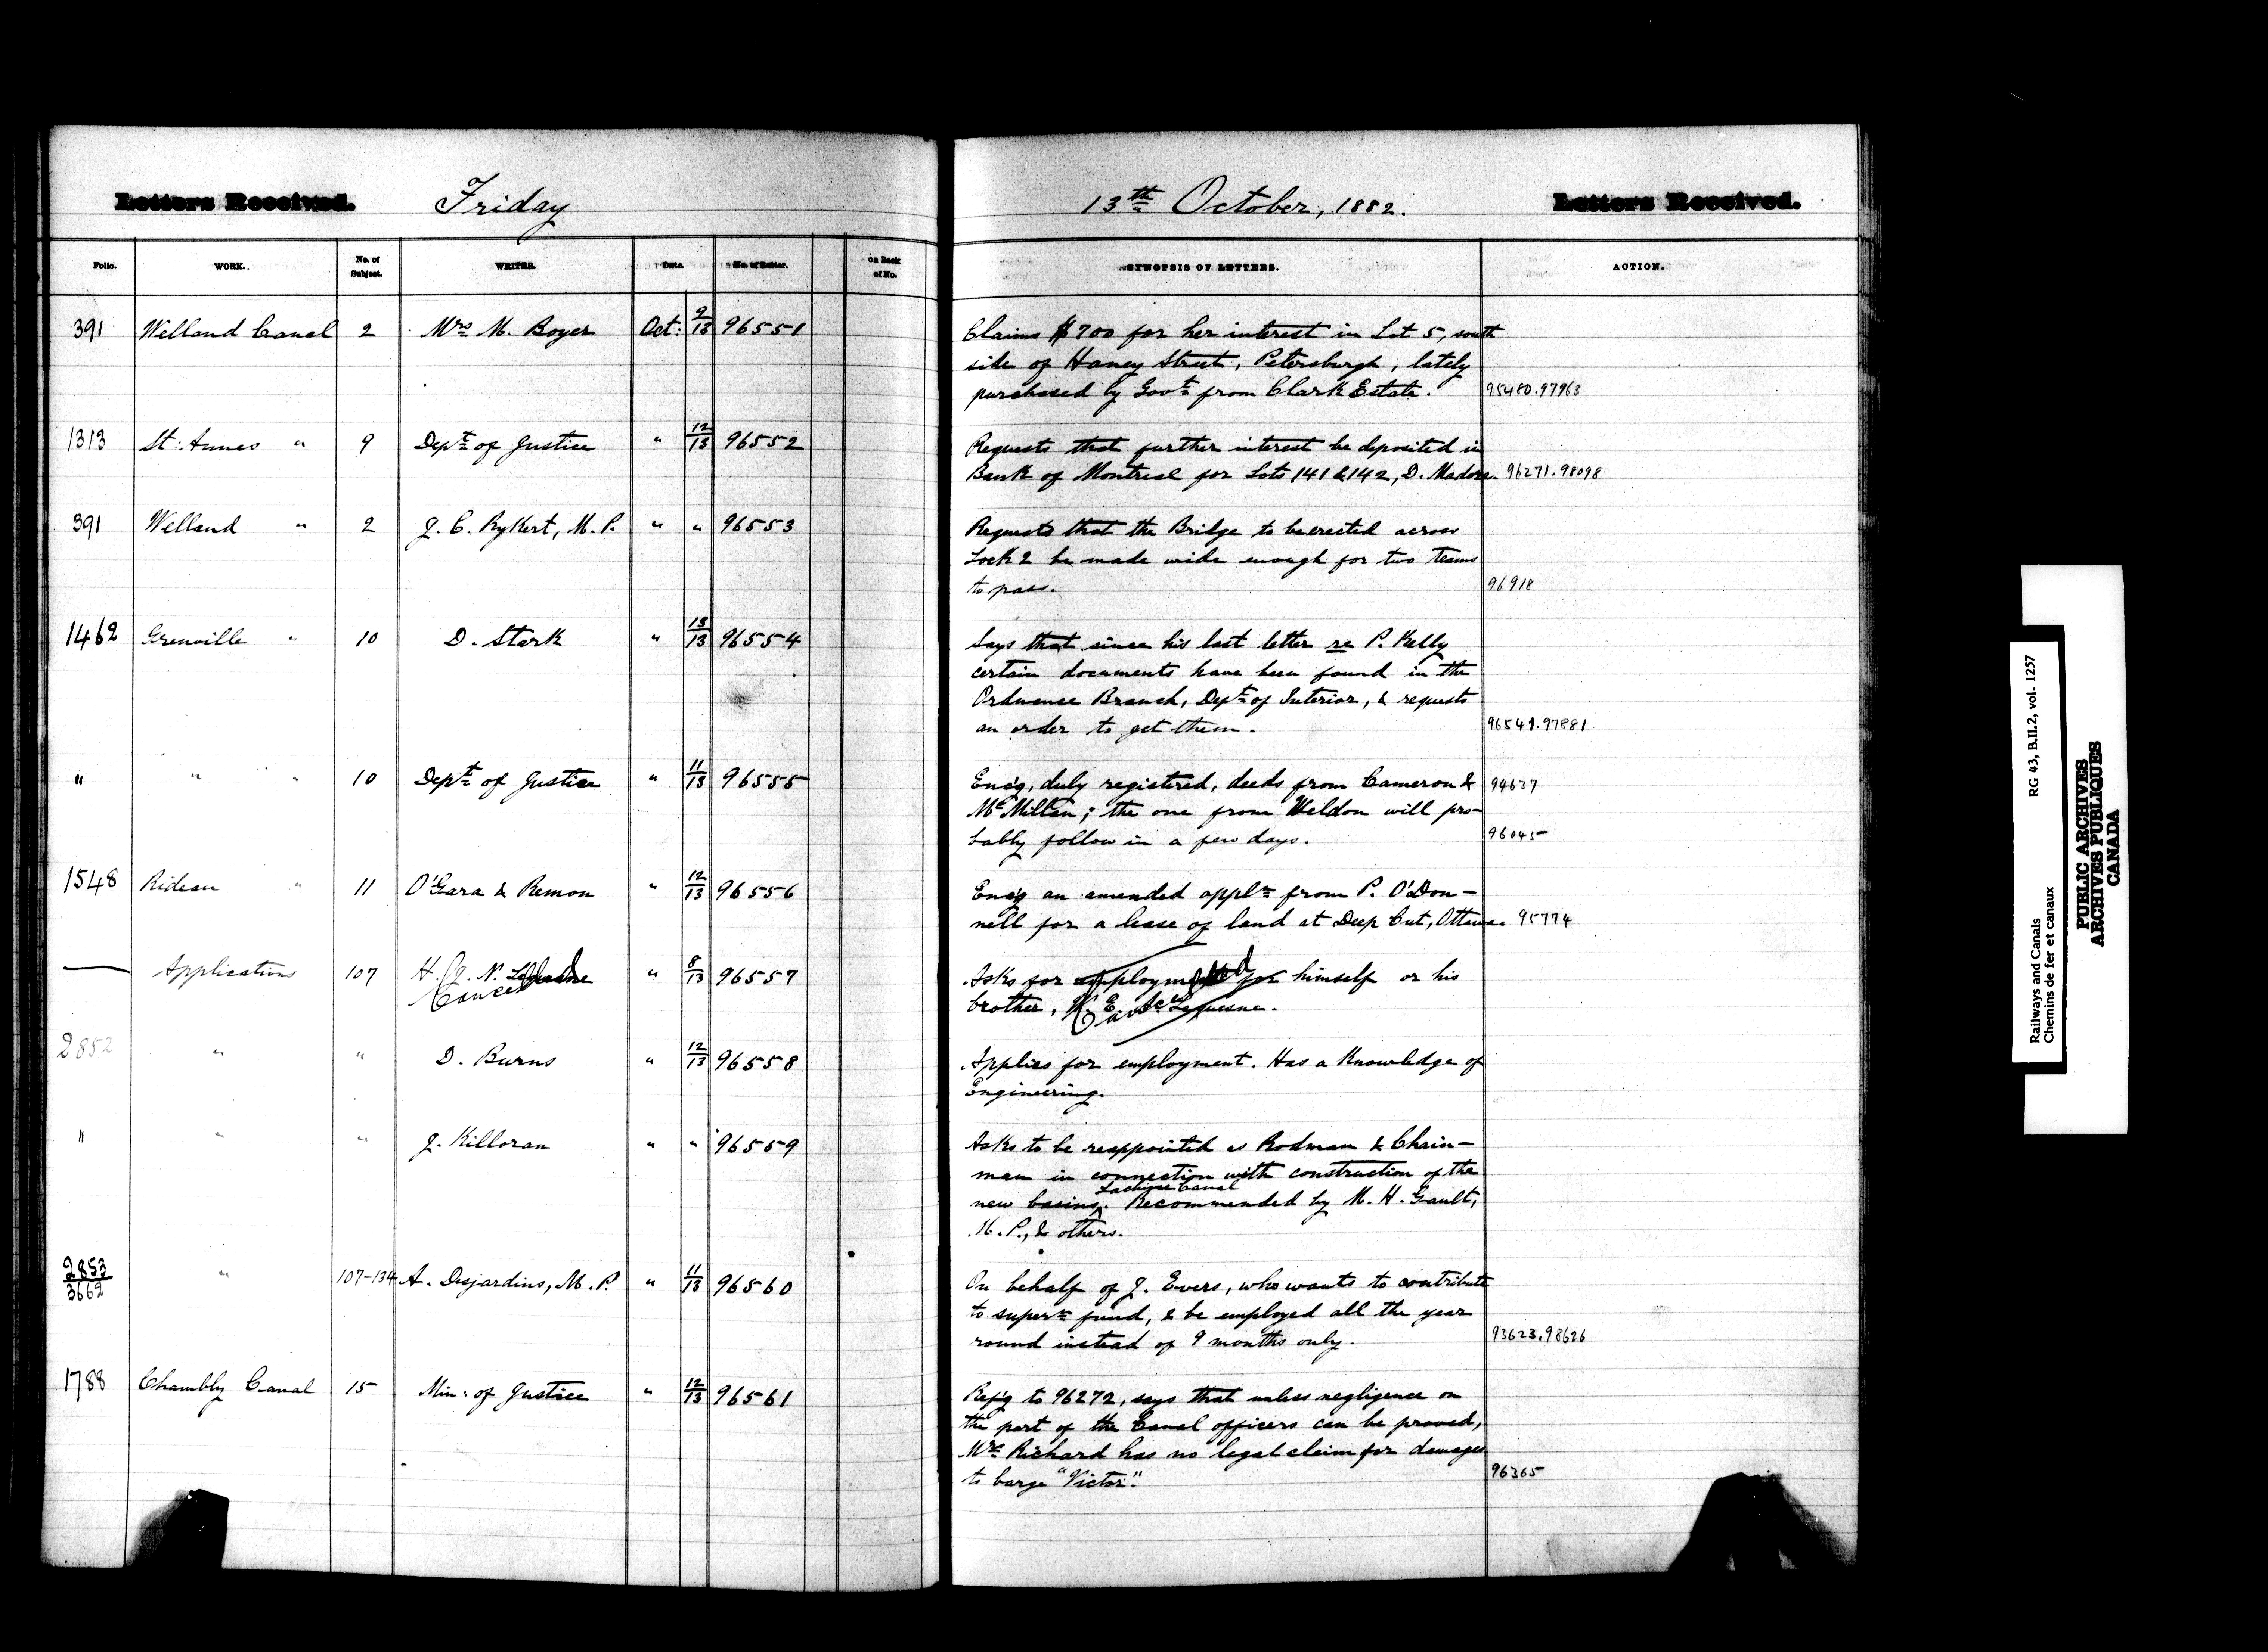 Letters Received. Friday 13th October, 1882. Letters Received.
Folio. WORK. No. of Subject. WRITER. Date. No. of Letter. on Back of No. SYNOPSIS OF LETTERS. ACTION.
391 Welland Canal 2 Mrs M. Boyer Oct: 9/13 96551 Claims $700 for her interest in Lot 5, south
side of Haney Street, Petersburgh, lately
purchased by Govt from Clark Estate. 95480.97963
1313 St. Annes " 9 Dept of Justice " 12/13 96552 Requests that further interest be deposited in
Bank of Montreal for Lots 141 & 142, D. Madore. 96271.98098
391 Welland " 2 J. C. Rykert, M.P. " " 96553 Requests that the Bridge to be erected across
Lock 2 be made wide enough for two teams
to pass. 96918
1462 Grenville " 10 D. Stark " 13/13 96554 Says that since his last letter re P. Kelly
certain documents have been found in the
Ordnance Branch, Dept of Interior, & requests
an order to get them. 96541.97881
" " " 10 Dept of Justice " 11/13 96555 Enc'g, duly registered, deeds from Cameron & 94637
McMillan; the one from Weldon will pro-
bably follow in a few days. 96045
1548 Rideau " 11 O'Gara & Remon " 12/13 96556 Enc'g an amended appln from P. O'Don-
nell for a lease of land at Deep Cut, Ottawa. 95774
— Applications 107 H. J. N. Lequesne " 8/13 96557 Asks for employment for himself or his
Cancelled
brother, E. Lequesne.
Cancelled
2852 " " D. Burns " 12/13 96558 Applies for employment. Has a Knowledge of
Engineering.
" " " J. Killoran " " 96559 Asks to be reappointed as Rodman & Chain-
man in connection with construction of the
Lachine Canal
new basins. Recommended by M. H. Gault,
M.P., & others.
2853/3662 " 107-134 A. Desjardins, M.P. " 11/13 96560 On behalf of J. Evers, who wants to contribute
to supern fund, & be employed all the year
round instead of 9 months only. 93623.98626
1788 Chambly Canal 15 Min: of Justice " 12/13 96561 Ref'g to 96272, says that unless negligence on
the part of the Canal officers can be proved,
Mrs Richard has no legal claim for damages
to barge "Victor". 96365
Railways and Canals RG 43, B.II.2, vol. 1257
Chemins de fer et canaux
PUBLIC ARCHIVES
ARCHIVES PUBLIQUES
CANADA